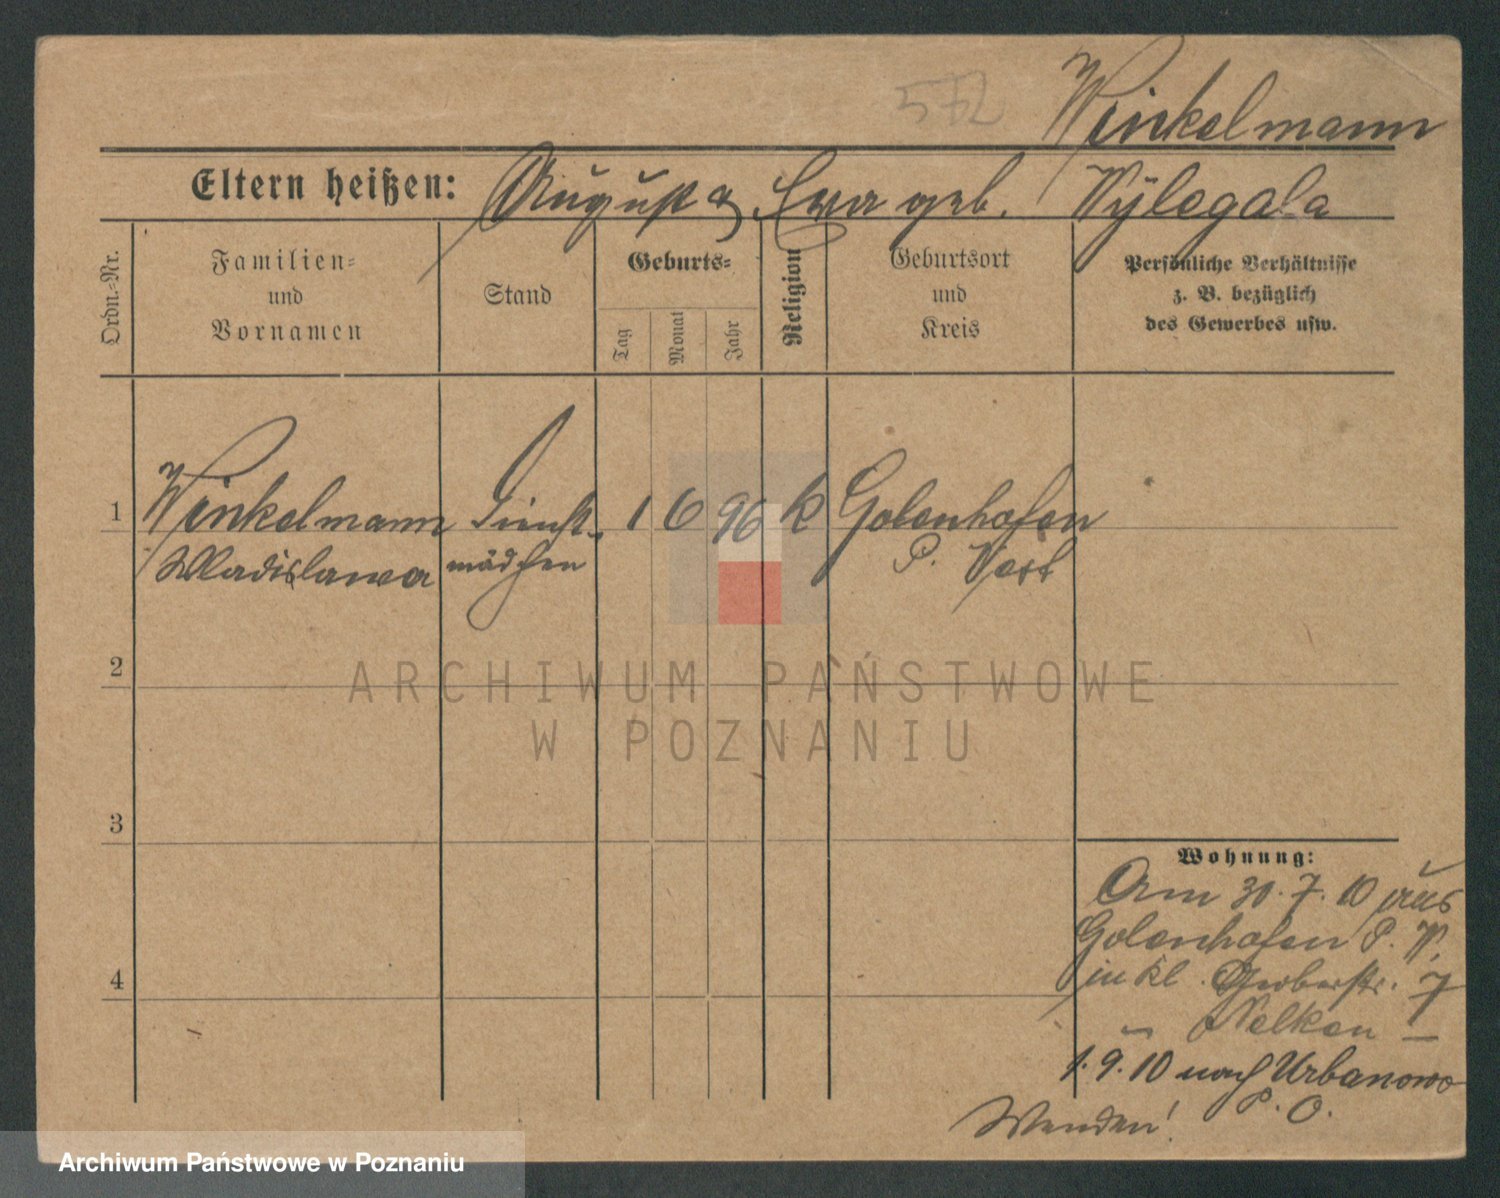 572
Winkelmann
Eltern heißen: August & Eva geb. Wÿlegala
Ordn.-Nr.
Familien-
und
Vornamen
Stand
Geburts-
Tag
Monat
Jahr
Religion
Geburtsort
und
Kreis
Persönliche Verhältnisse
z. B. bezüglich
des Gewerbes usw.
1 Winkelmann Dienst- 1 6 96 k Golenhofen
Wladislawa mädchen P. West
2
3
4
Wohnung:
Am 30.7.10 aus
Golenhofen P. W.
in kl. Gerberstr. 7
Nelken —
1.9.10 nach Urbanowo
P. O.
Wenden!
ARCHIWUM PAŃSTWOWE
W POZNANIU
Archiwum Państwowe w Poznaniu